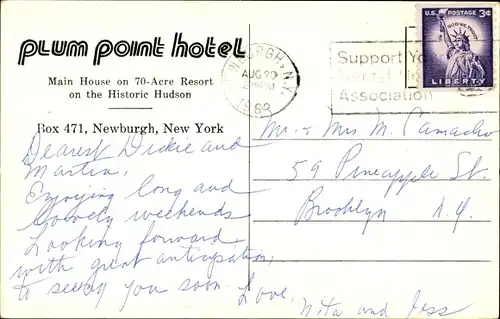 plum point hotel
Main House on 70-Acre Resort
on the Historic Hudson
Box 471, Newburgh, New York
NEWBURGH, N.Y.
AUG 20
PM
Support Yo
Association
U.S. POSTAGE 3¢
IN GOD WE TRUST
LIBERTY
Dearest Dickie and
Martin,
Enjoying long and
lovely weekends
Looking forward
with great anticipation,
to seeing you soon. Love,
Nita and Jess
Mr. & Mrs M. Camacho
59 Pineapple St.
Brooklyn N.Y.